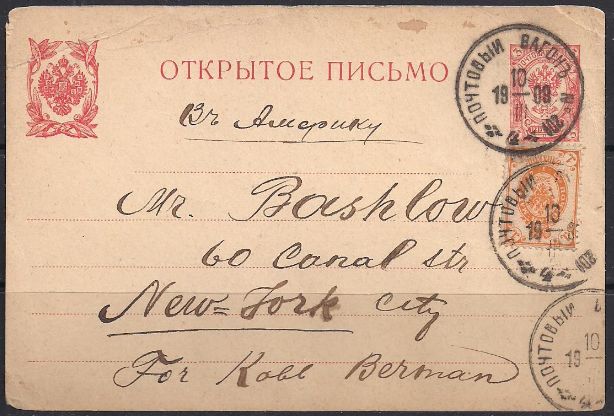 ОТКРЫТОЕ ПИСЬМО
Въ Америку
Mr. Bashlow
60 Canal str
New=York City
For Kobl Berman
ПОЧТОВЫЙ ВАГОНЪ №
10
19 09
ПОЧТОВЫЙ
10
19
ПОЧТОВЫЙ
10
19